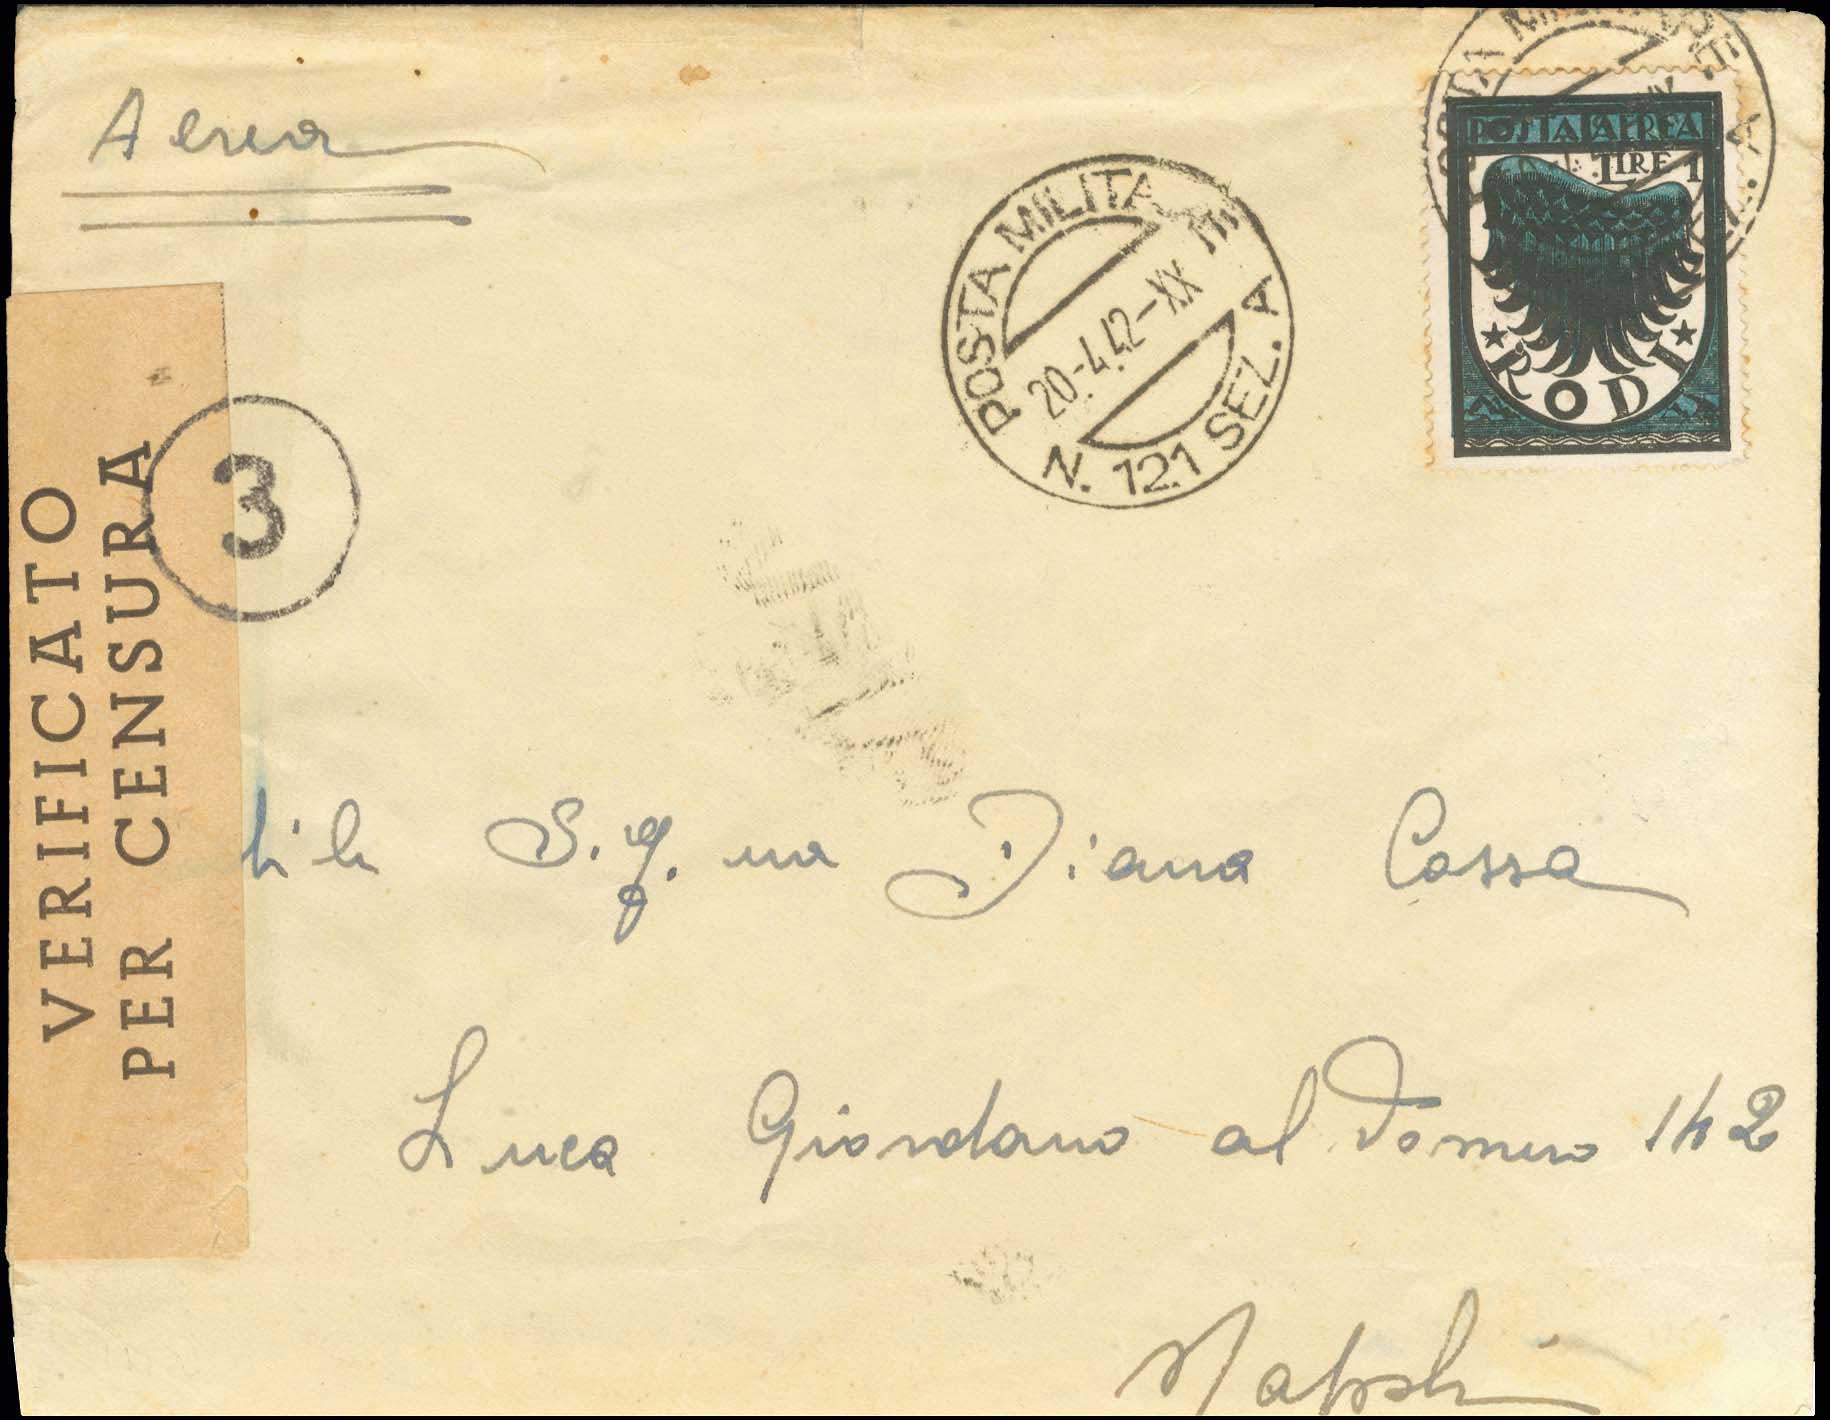 Aerea
POSTA MILITARE
20.4.42-XX
N. 121 SEZ. A
POSTA AEREA
LIRE 1
RODI
VERIFICATO
PER CENSURA
3
S.g.na Diana Cassa
Luca Giordano al Vomero 142
Napoli